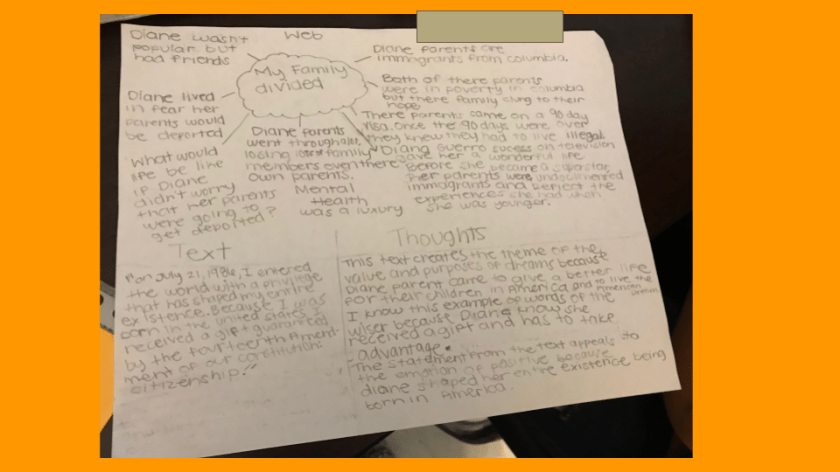 Web
Diane wasn't
popular but
had friends
My Family
divided
Diane parents are
immigrants from columbia
Both of there parents
were in poverty in columbia
but there family clung to their
hope
There parents came on a 90 day
visa. Once the 90 days were over
they knew they had to live illegal
Diane lived
in fear her
parents would
be deported
Diane parents
went through alot,
losing family
members even there
own parents.
Mental
Health
was a luxury
What would
life be like
if Diane
didn't worry
that her parents
were going to
get deported?
Diane Guerro sucess on television
gave her a wonderful life
Before she became a superstar
her parents were undocumented
immigrants and the
experiences she had when
she was younger.
Text
"on July 21, 1986, I entered
the world with a privilege
that has shaped my entire
existence. Because I was
born in the united states I
received a gift guaranteed
by the fourteenth Amend-
ment of our constitution:
citizenship."
Thoughts
This text creates the theme of the
value and purposes of dreams because
Diane parent came to give a better life
for their children in America and to live the
American dream
I know this example of words of the
wiser because Diane know she
received a gift and has to take
advantage.
The statement from the text appeals to
the emotion of positive because
diane shaped her entire existence being
born in America.